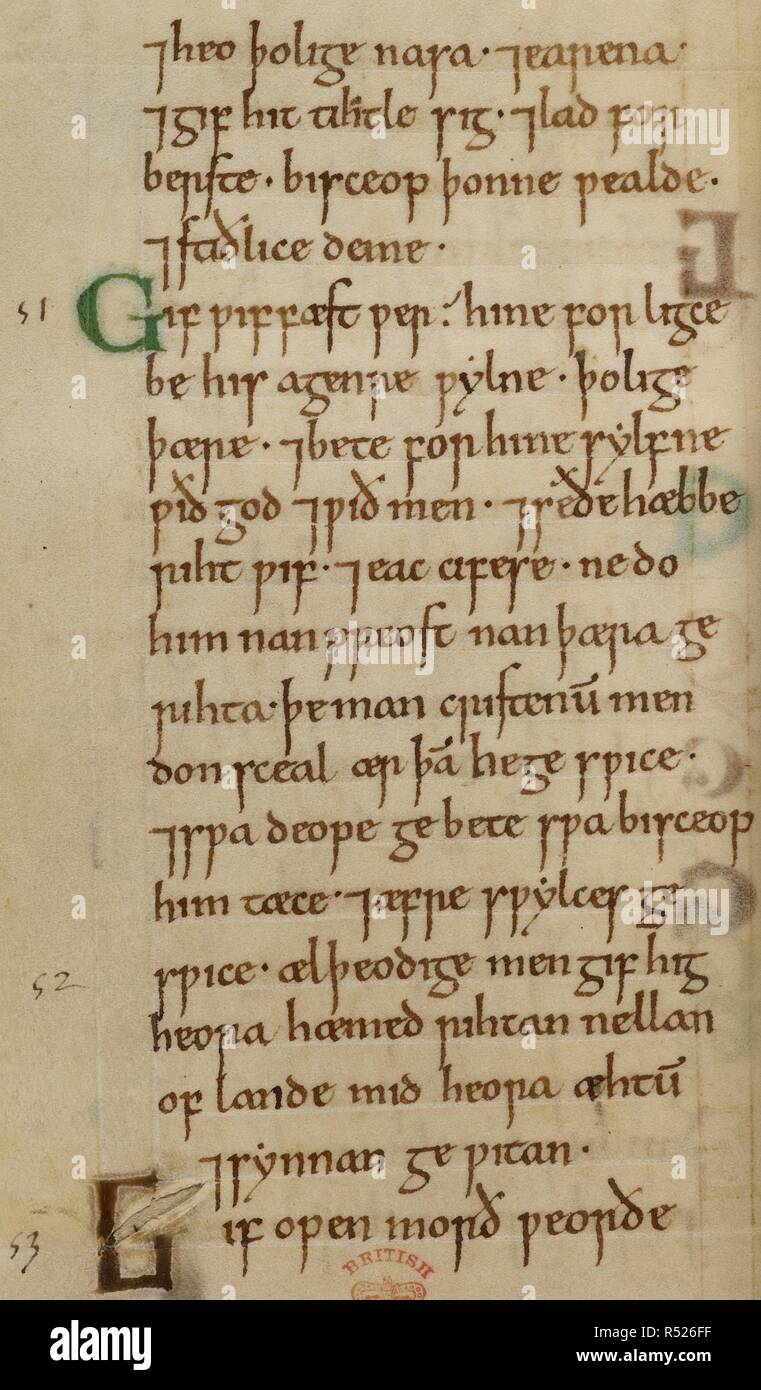 ⁊ heo þolige nasa · ⁊ earena ·
⁊ gif hit tihtle sig · ⁊ lad for
berste · bisceop þonne ƿealde ·
⁊ stiðlice deme ·
51
Gif ƿiffæst ƿer hine forligce
be his agenre ƿylne · þolige
þære · ⁊ bete for hine sylfne
ƿið god ⁊ ƿið men · ⁊ seðe hæbbe
riht ƿif · ⁊ eac cifese · ne do
him nan preost nan þæra ge
rihta · þe man cristenū men
don sceal ær þā he gesƿice ·
⁊ sƿa deope gebete sƿa bisceop
him tæce · ⁊ æfre sƿylces ge
52
sƿice · ælþeodige men gif hig
heora hæmed rihtan nellan
of lande mid heora æhtū
⁊ synnan geƿitan ·
53
Gif open morð ƿeorðe
BRITISH
alamy
Image ID: R526FF
www.alamy.com